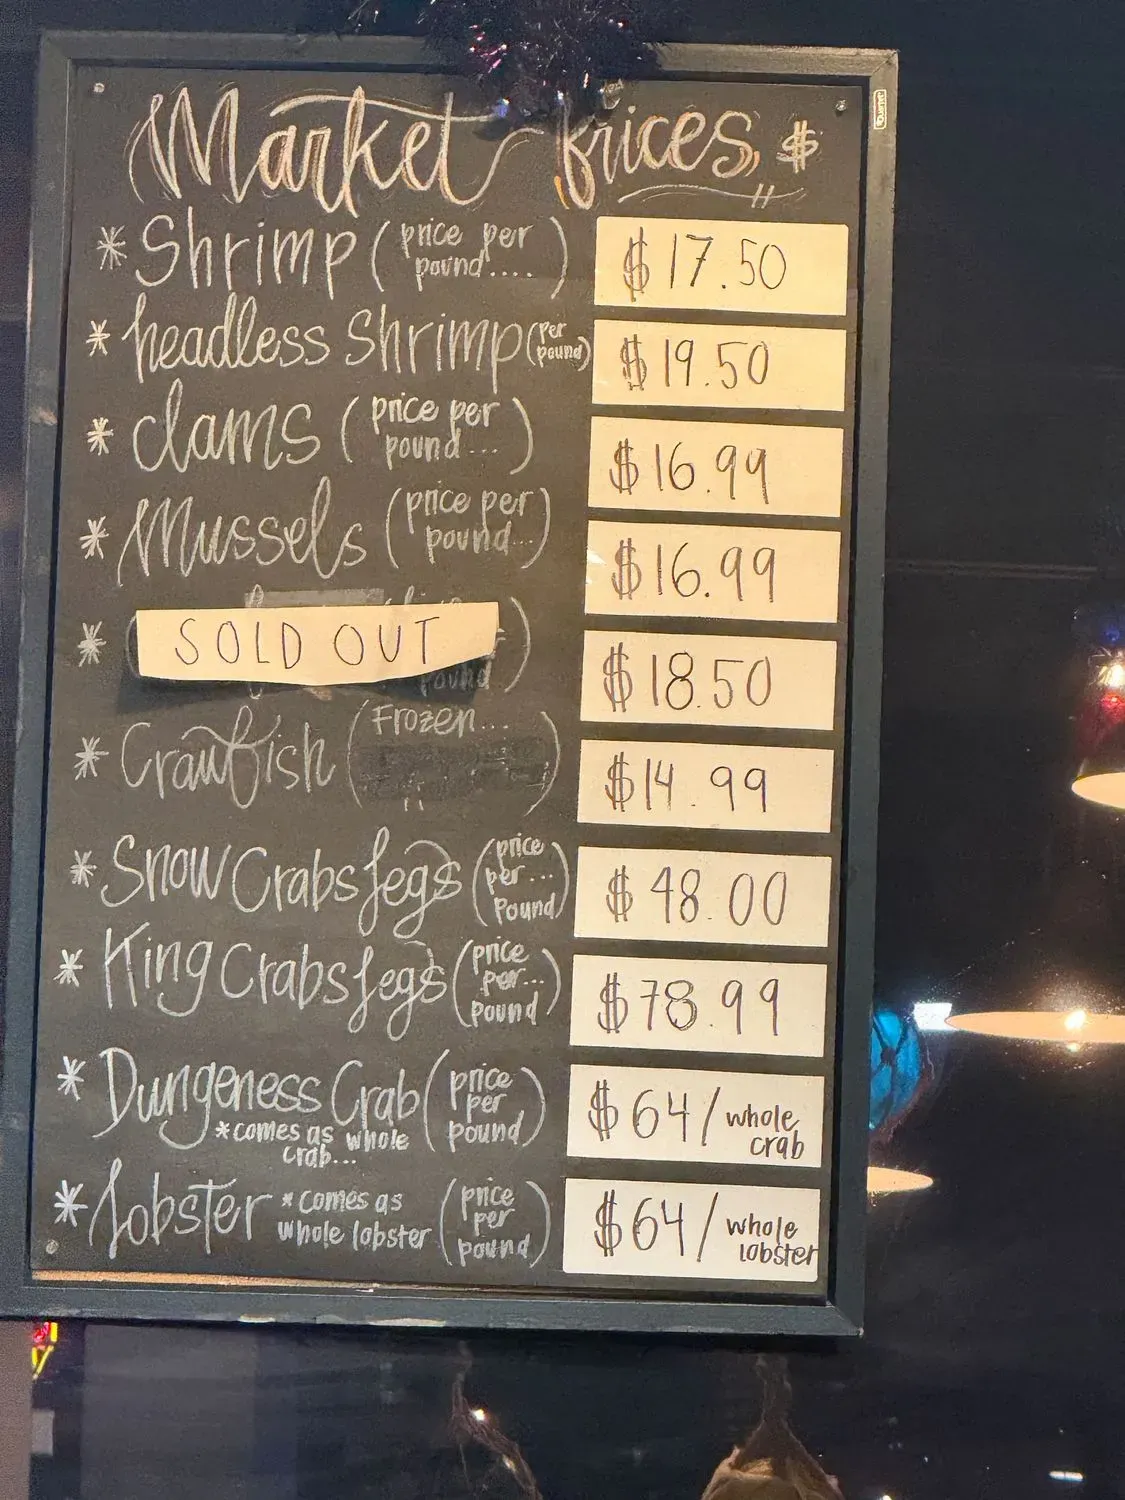 Market Prices, $
* Shrimp (price per pound....) $17.50
* headless shrimp (per pound) $19.50
* clams (price per pound...) $16.99
* Mussels (price per pound...) $16.99
* SOLD OUT pound) $18.50
* Crawfish (Frozen... ) $14.99
* Snow Crabs legs (price per... Pound) $48.00
* King Crabs legs (price per... pound) $78.99
* Dungeness Crab (price per pound) $64/whole crab
*comes as whole crab...
* Lobster *comes as whole lobster (price per pound) $64/whole lobster